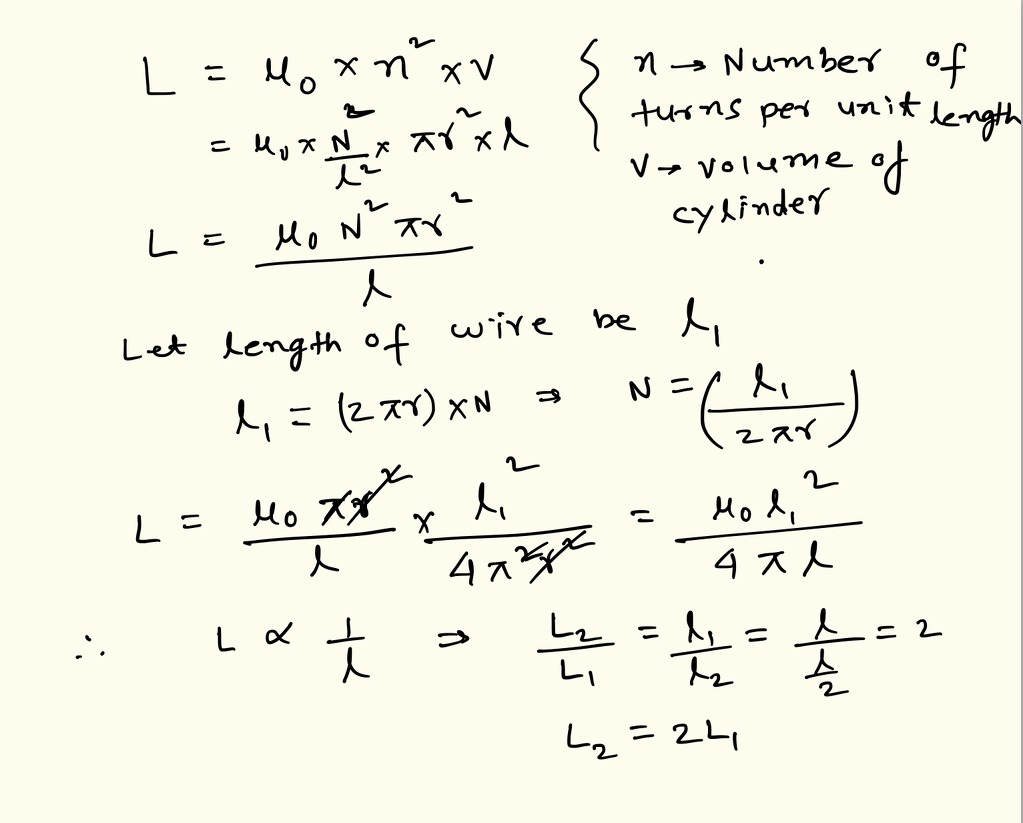 L = μ₀ × n² × V { n → Number of
turns per unit length
= μ₀ × N²/l² × πr² × l
V → volume of
cylinder
L = μ₀ N² πr² / l
Let length of wire be l₁
l₁ = (2πr) × N ⇒ N = (l₁ / 2πr)
L = μ₀ πr² / l × l₁² / 4π²r² = μ₀ l₁² / 4πl
∴ L ∝ 1/l ⇒ L₂/L₁ = l₁/l₂ = l/(l/2) = 2
L₂ = 2L₁